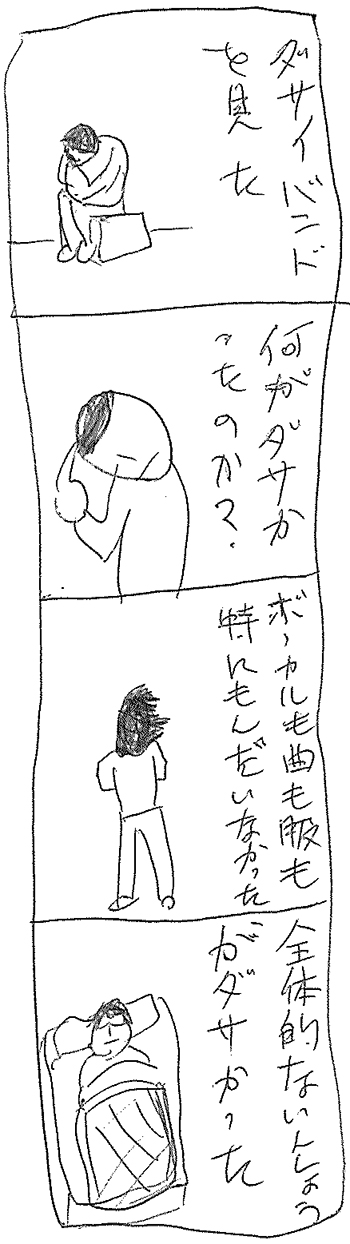 ダサイバンド
を見た
何がダサか
ったのか?
ボーカルも曲も服も
特にもんだいなかった
全体的ないんしょう
がダサかった